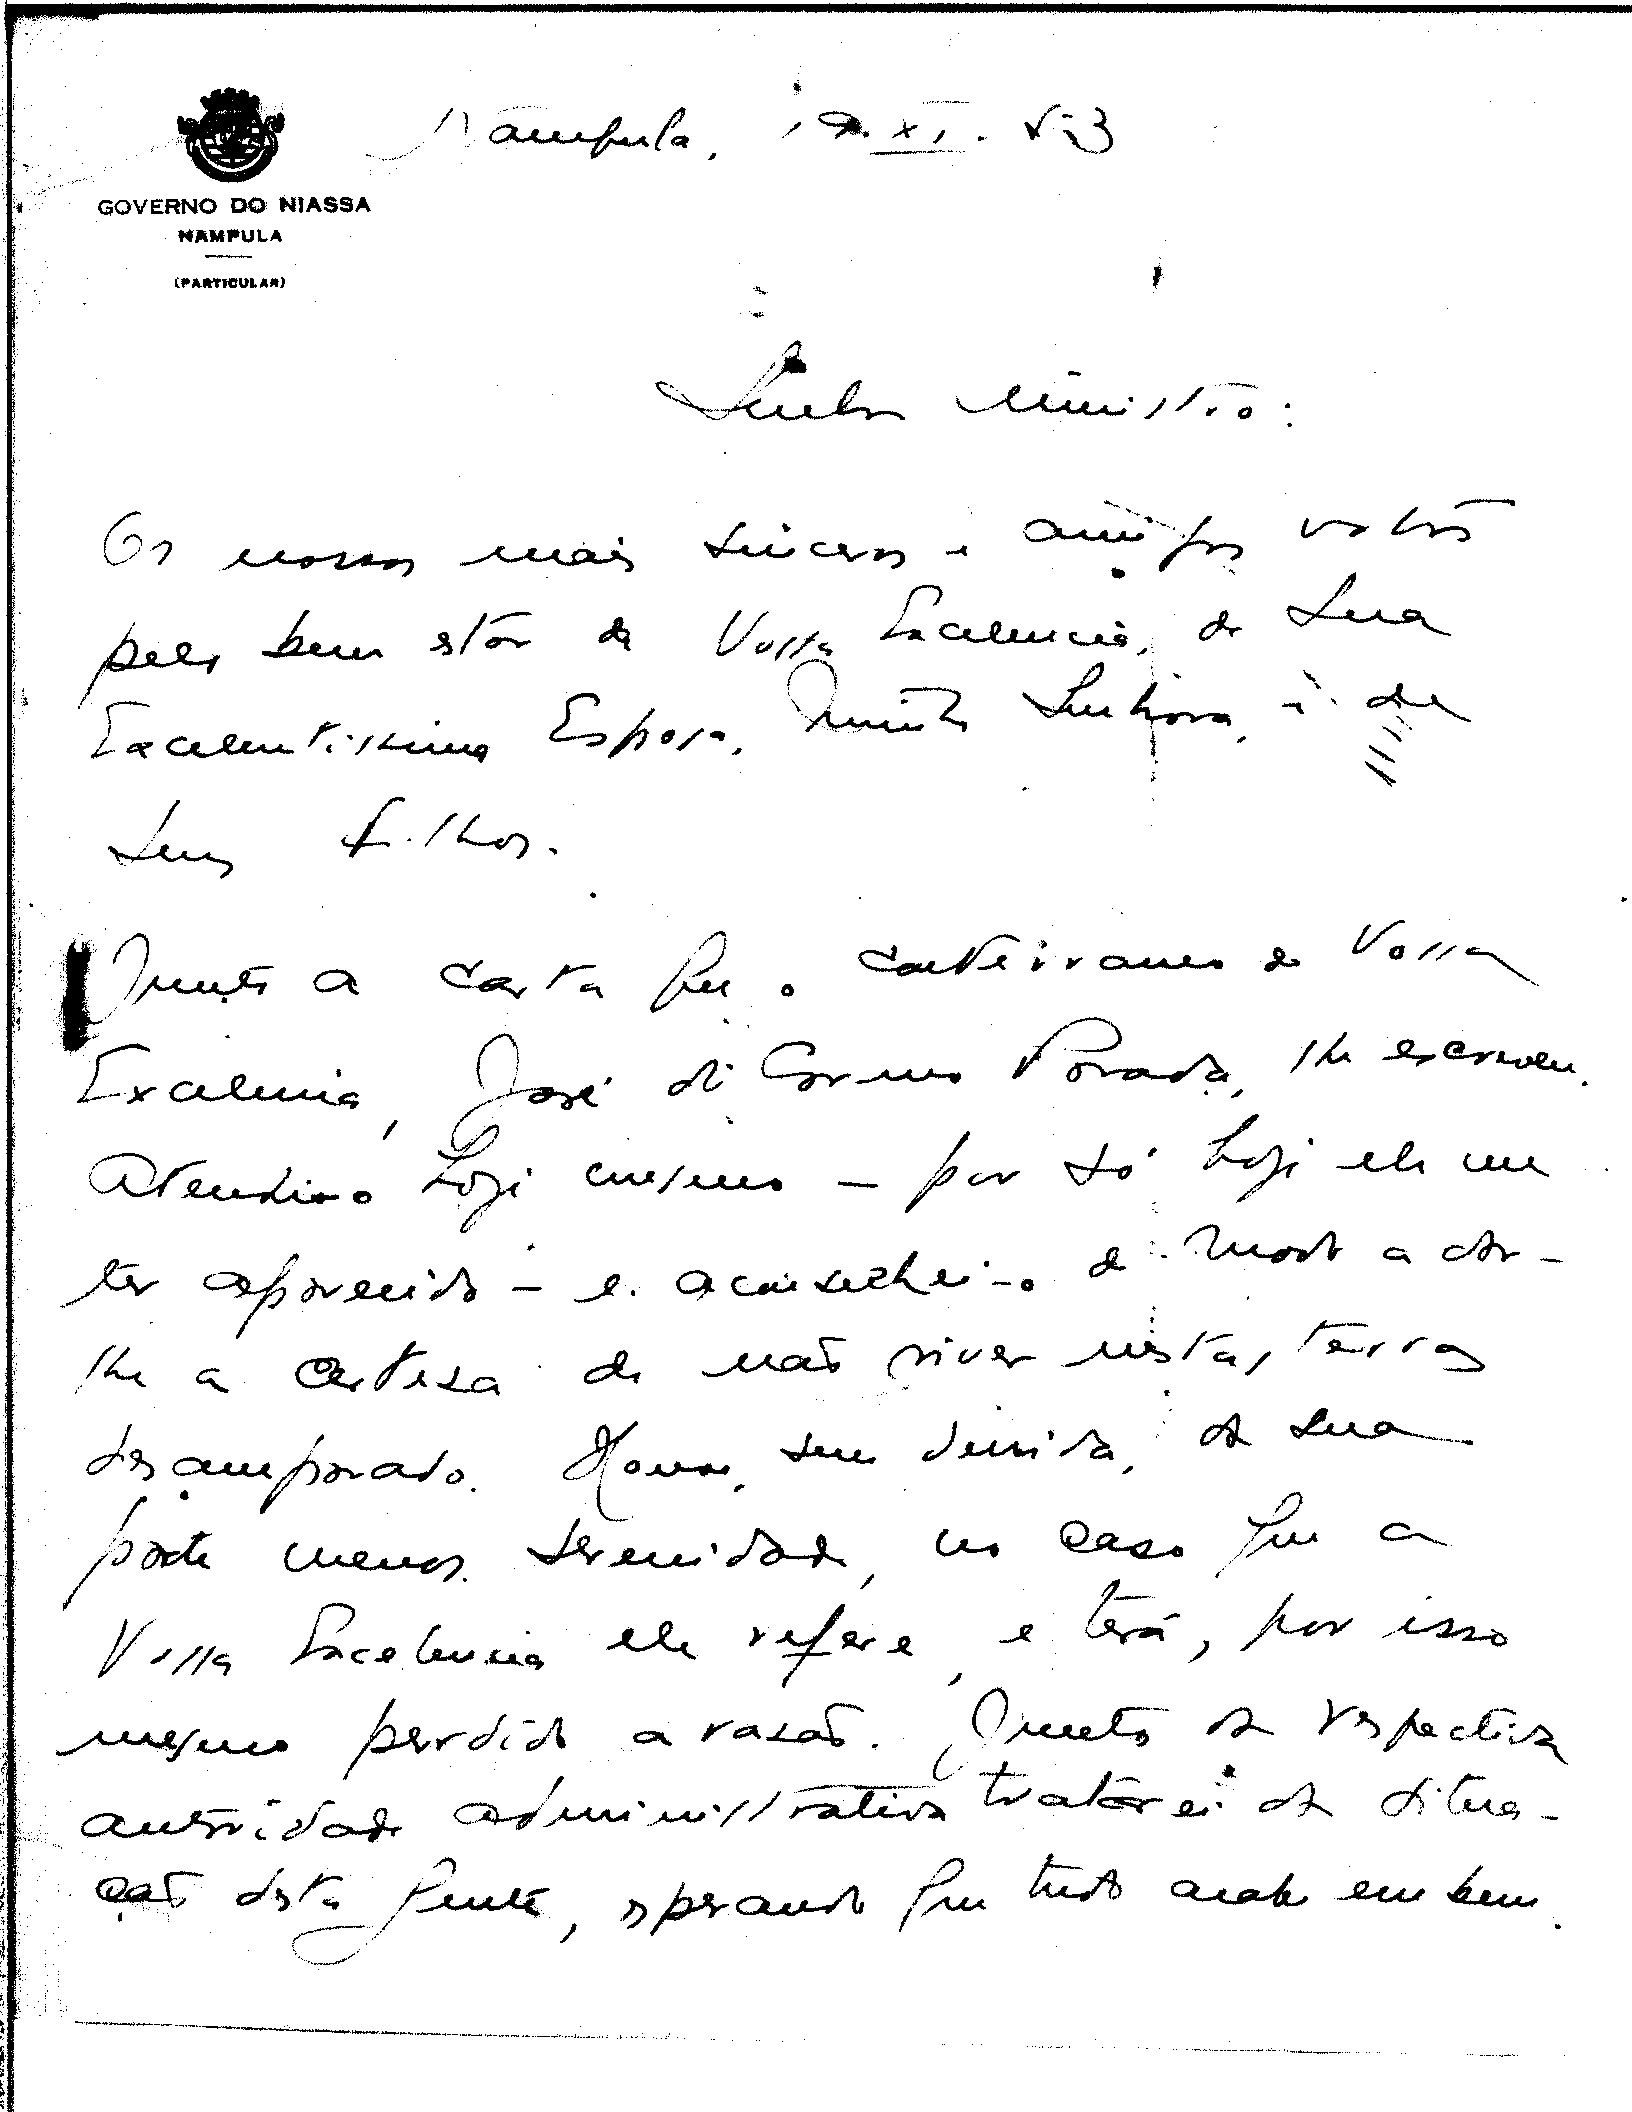 GOVERNO DO NIASSA
NAMPULA
(PARTICULAR)
Nampula, XI. 53
Senhor Ministro:
Os nossos mais sinceros e amigos votos
pelo bem estar de Vossa Excelencia, de Sua
Excelentissima Esposa, Minha Senhora, e de
Seus filhos.
Junto a carta que o conterraneo de Vossa
Excelencia, José do Carmo Povoada, lhe escreveu.
Atendi-o hoje mesmo – por só hoje ele me
ter aparecido – e aconselhei-o de modo a dar-
lhe a certeza de não viver nestas terras
desamparado. Houve, sem duvida, da sua
parte menos serenidade, no caso que a
Vossa Excelencia ele refere, e terá, por isso
mesmo perdido a razão. Junto da respectiva
autoridade administrativa tratarei da situa-
ção desta gente, esperando que tudo acabe em bem.